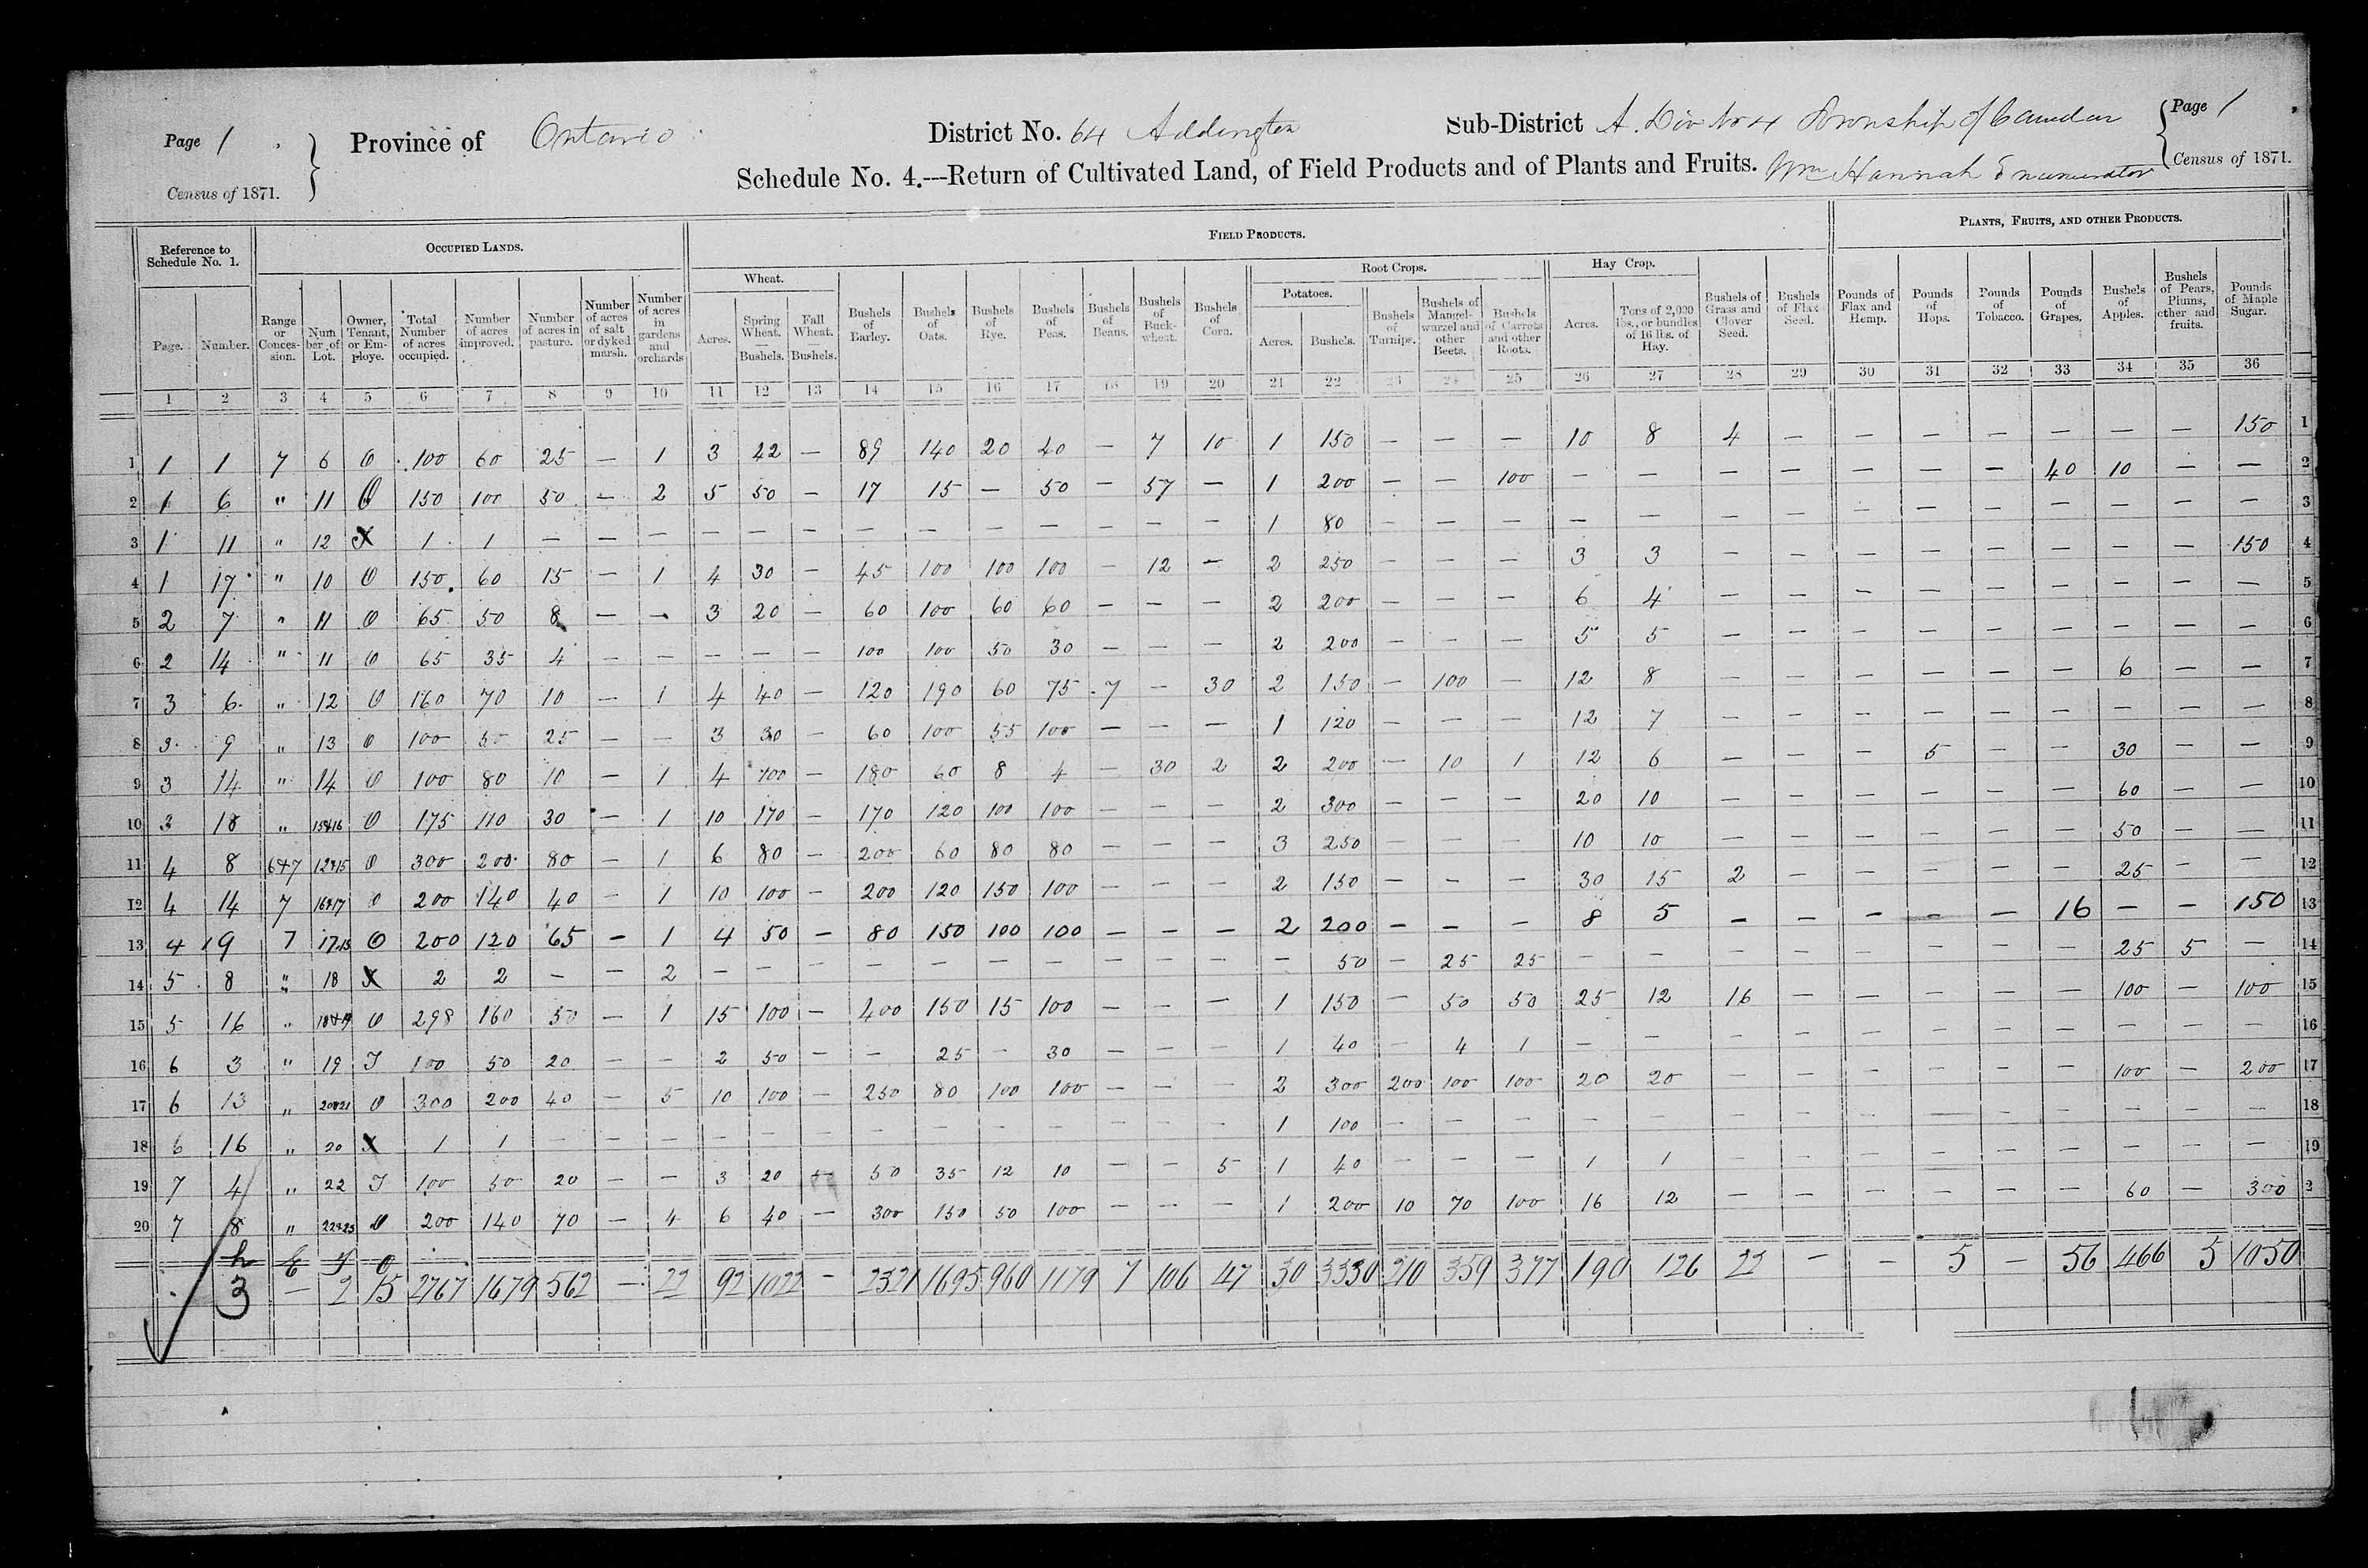 Page 1
Census of 1871.
Province of Ontario
District No. 64 Addington
Sub-District A. Div No 4 Township of Camden
Page 1
Census of 1871.
Schedule No. 4.---Return of Cultivated Land, of Field Products and of Plants and Fruits. Wm Hannah Enumerator
Reference to Schedule No. 1. OCCUPIED LANDS. FIELD PRODUCTS. PLANTS, FRUITS, AND OTHER PRODUCTS.
Wheat. Root Crops. Hay Crop.
Potatoes.
Page. Number. Range or Conces-sion. Num ber of Lot. Owner, Tenant, or Em-ploye. Total Number of acres occupied. Number of acres improved. Number of acres in pasture. Number of acres of salt or dyked marsh. Number of acres in gardens and orchards Acres. Spring Wheat. — Bushels. Fall Wheat. — Bushels. Bushels of Barley. Bushels of Oats. Bushels of Rye. Bushels of Peas. Bushels of Beans. Bushels of Buck-wheat. Bushels of Corn. Acres. Bushels. Bushels of Turnips. Bushels of Mangel-wurzel and other Beets. Bushels of Carrots and other Roots. Acres. Tons of 2,000 lbs., or bundles of 16 lbs. of Hay. Bushels of Grass and Clover Seed. Bushels of Flax Seed. Pounds of Flax and Hemp. Pounds of Hops. Pounds of Tobacco. Pounds of Grapes. Bushels of Apples. Bushels of Pears, Plums, other and fruits. Pounds of Maple Sugar.
1 2 3 4 5 6 7 8 9 10 11 12 13 14 15 16 17 18 19 20 21 22 23 24 25 26 27 28 29 30 31 32 33 34 35 36
1 1 1 7 6 O 100 60 25 — 1 3 42 — 89 140 20 40 — 7 10 1 150 — — — 10 8 4 — — — — — — — 150 1
2 1 6 " 11 O 150 100 50 — 2 5 50 — 17 15 — 50 — 57 — 1 200 — — 100 — — — — — — — 40 10 — — 2
3 1 11 " 12 X 1 1 — — — — — — — — — — — — — 1 80 — — — — — — — — — — — — — — 3
4 1 17 " 10 O 150 60 15 — 1 4 30 — 45 100 100 100 — 12 — 2 250 — — — 3 3 — — — — — — — — 150 4
5 2 7 " 11 O 65 50 8 — — 3 20 — 60 100 60 60 — — — 2 200 — — — 6 4 — — — — — — — — — 5
6 2 14 " 11 O 65 35 4 — — — — — 100 100 50 30 — — — 2 200 — — — 5 5 — — — — — — — — — 6
7 3 6 " 12 O 160 70 10 — 1 4 40 — 120 190 60 75 7 — 30 2 150 — 100 — 12 8 — — — — — — 6 — — 7
8 3 9 " 13 O 100 50 25 — — 3 30 — 60 100 55 100 — — — 1 120 — — — 12 7 — — — — — — — — — 8
9 3 14 " 14 O 100 80 10 — 1 4 100 — 180 60 8 4 — 30 2 2 200 — 10 1 12 6 — — — 5 — — 30 — — 9
10 3 18 " 15&16 O 175 110 30 — 1 10 170 — 170 120 100 100 — — — 2 300 — — — 20 10 — — — — — — 60 — — 10
11 4 8 6&7 12&15 O 300 200 80 — 1 6 80 — 200 60 80 80 — — — 3 250 — — — 10 10 — — — — — — 50 — — 11
12 4 14 7 16&17 O 200 140 40 — 1 10 100 — 200 120 150 100 — — — 2 150 — — — 30 15 2 — — — — — 25 — — 12
13 4 19 7 17.18 O 200 120 65 — 1 4 50 — 80 150 100 100 — — — 2 200 — — — 8 5 — — — — — 16 — — 150 13
14 5 8 " 18 X 2 2 — — 2 — — — — — — — — — — — 50 — 25 25 — — — — — — — — 25 5 — 14
15 5 16 " 18&19 O 298 160 50 — 1 15 100 — 400 150 15 100 — — — 1 150 — 50 50 25 12 16 — — — — — 100 — 100 15
16 6 3 " 19 T 100 50 20 — — 2 50 — — 25 — 30 — — — 1 40 — 4 1 — — — — — — — — — — — 16
17 6 13 " 20&21 O 300 200 40 — 5 10 100 — 250 80 100 100 — — — 2 300 200 100 100 20 20 — — — — — — 100 — 200 17
18 6 16 " 20 X 1 1 — — — — — — — — — — — — — 1 100 — — — — — — — — — — — — — — 18
19 7 4 " 22 T 100 50 20 — — 3 20 50 35 12 10 — — 5 1 40 — — — 1 1 — — — — — — — — — 19
20 7 8 " 22&23 O 200 140 70 — 4 6 40 — 300 150 50 100 — — — 1 200 10 70 100 16 12 — — — — — — 60 — 300 2
h E T O
3 — 2 15 2767 1679 562 — 22 92 1022 — 2321 1695 960 1179 7 106 47 30 3330 210 359 377 190 126 22 — — 5 — 56 466 5 1050